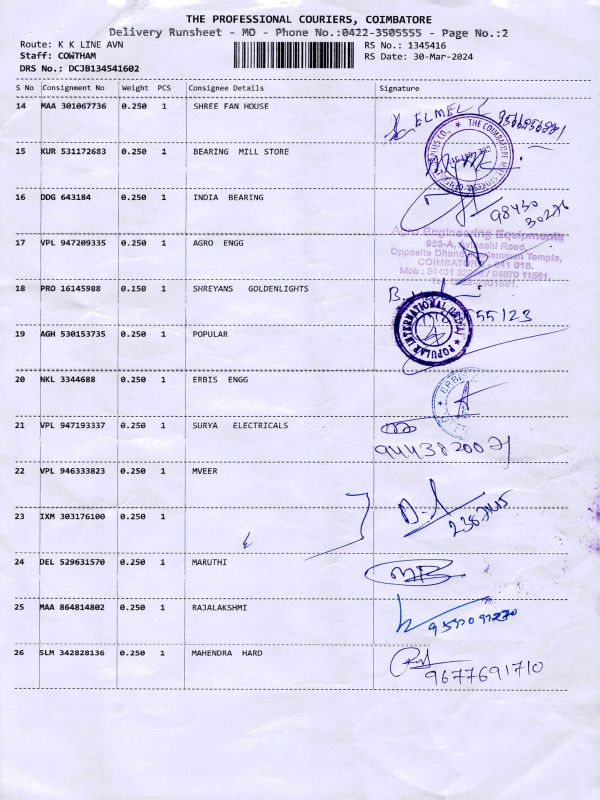 THE PROFESSIONAL COURIERS, COIMBATORE
Delivery Runsheet - MO - Phone No.:0422-3505555 - Page No.:2
Route: K K LINE AVN
RS No.: 1345416
Staff: COWTHAM
RS Date: 30-Mar-2024
DRS No.: DCJB134541602
S No Consignment No Weight PCS Consignee Details Signature
14 MAA 301067736 0.250 1 SHREE FAN HOUSE
15 KUR 531172683 0.250 1 BEARING MILL STORE
16 DDG 643184 0.250 1 INDIA BEARING
98430
30276
17 VPL 947209335 0.250 1 AGRO ENGG
Engineering Equipments
953-A, Avinashi Road,
COIMBATORE - 641 018.
18 PRO 16145988 0.150 1 SHREYANS GOLDENLIGHTS
55123
19 AGH 530153735 0.250 1 POPULAR
POPULAR INTERNATIONAL (INDIA)
20 NKL 3344688 0.250 1 ERBIS ENGG
21 VPL 947193337 0.250 1 SURYA ELECTRICALS
22 VPL 946333823 0.250 1 MVEER
23 IXM 303176100 0.250 1
24 DEL 529631570 0.250 1 MARUTHI
25 MAA 864814802 0.250 1 RAJALAKSHMI
26 SLM 342828136 0.250 1 MAHENDRA HARD
9677691710